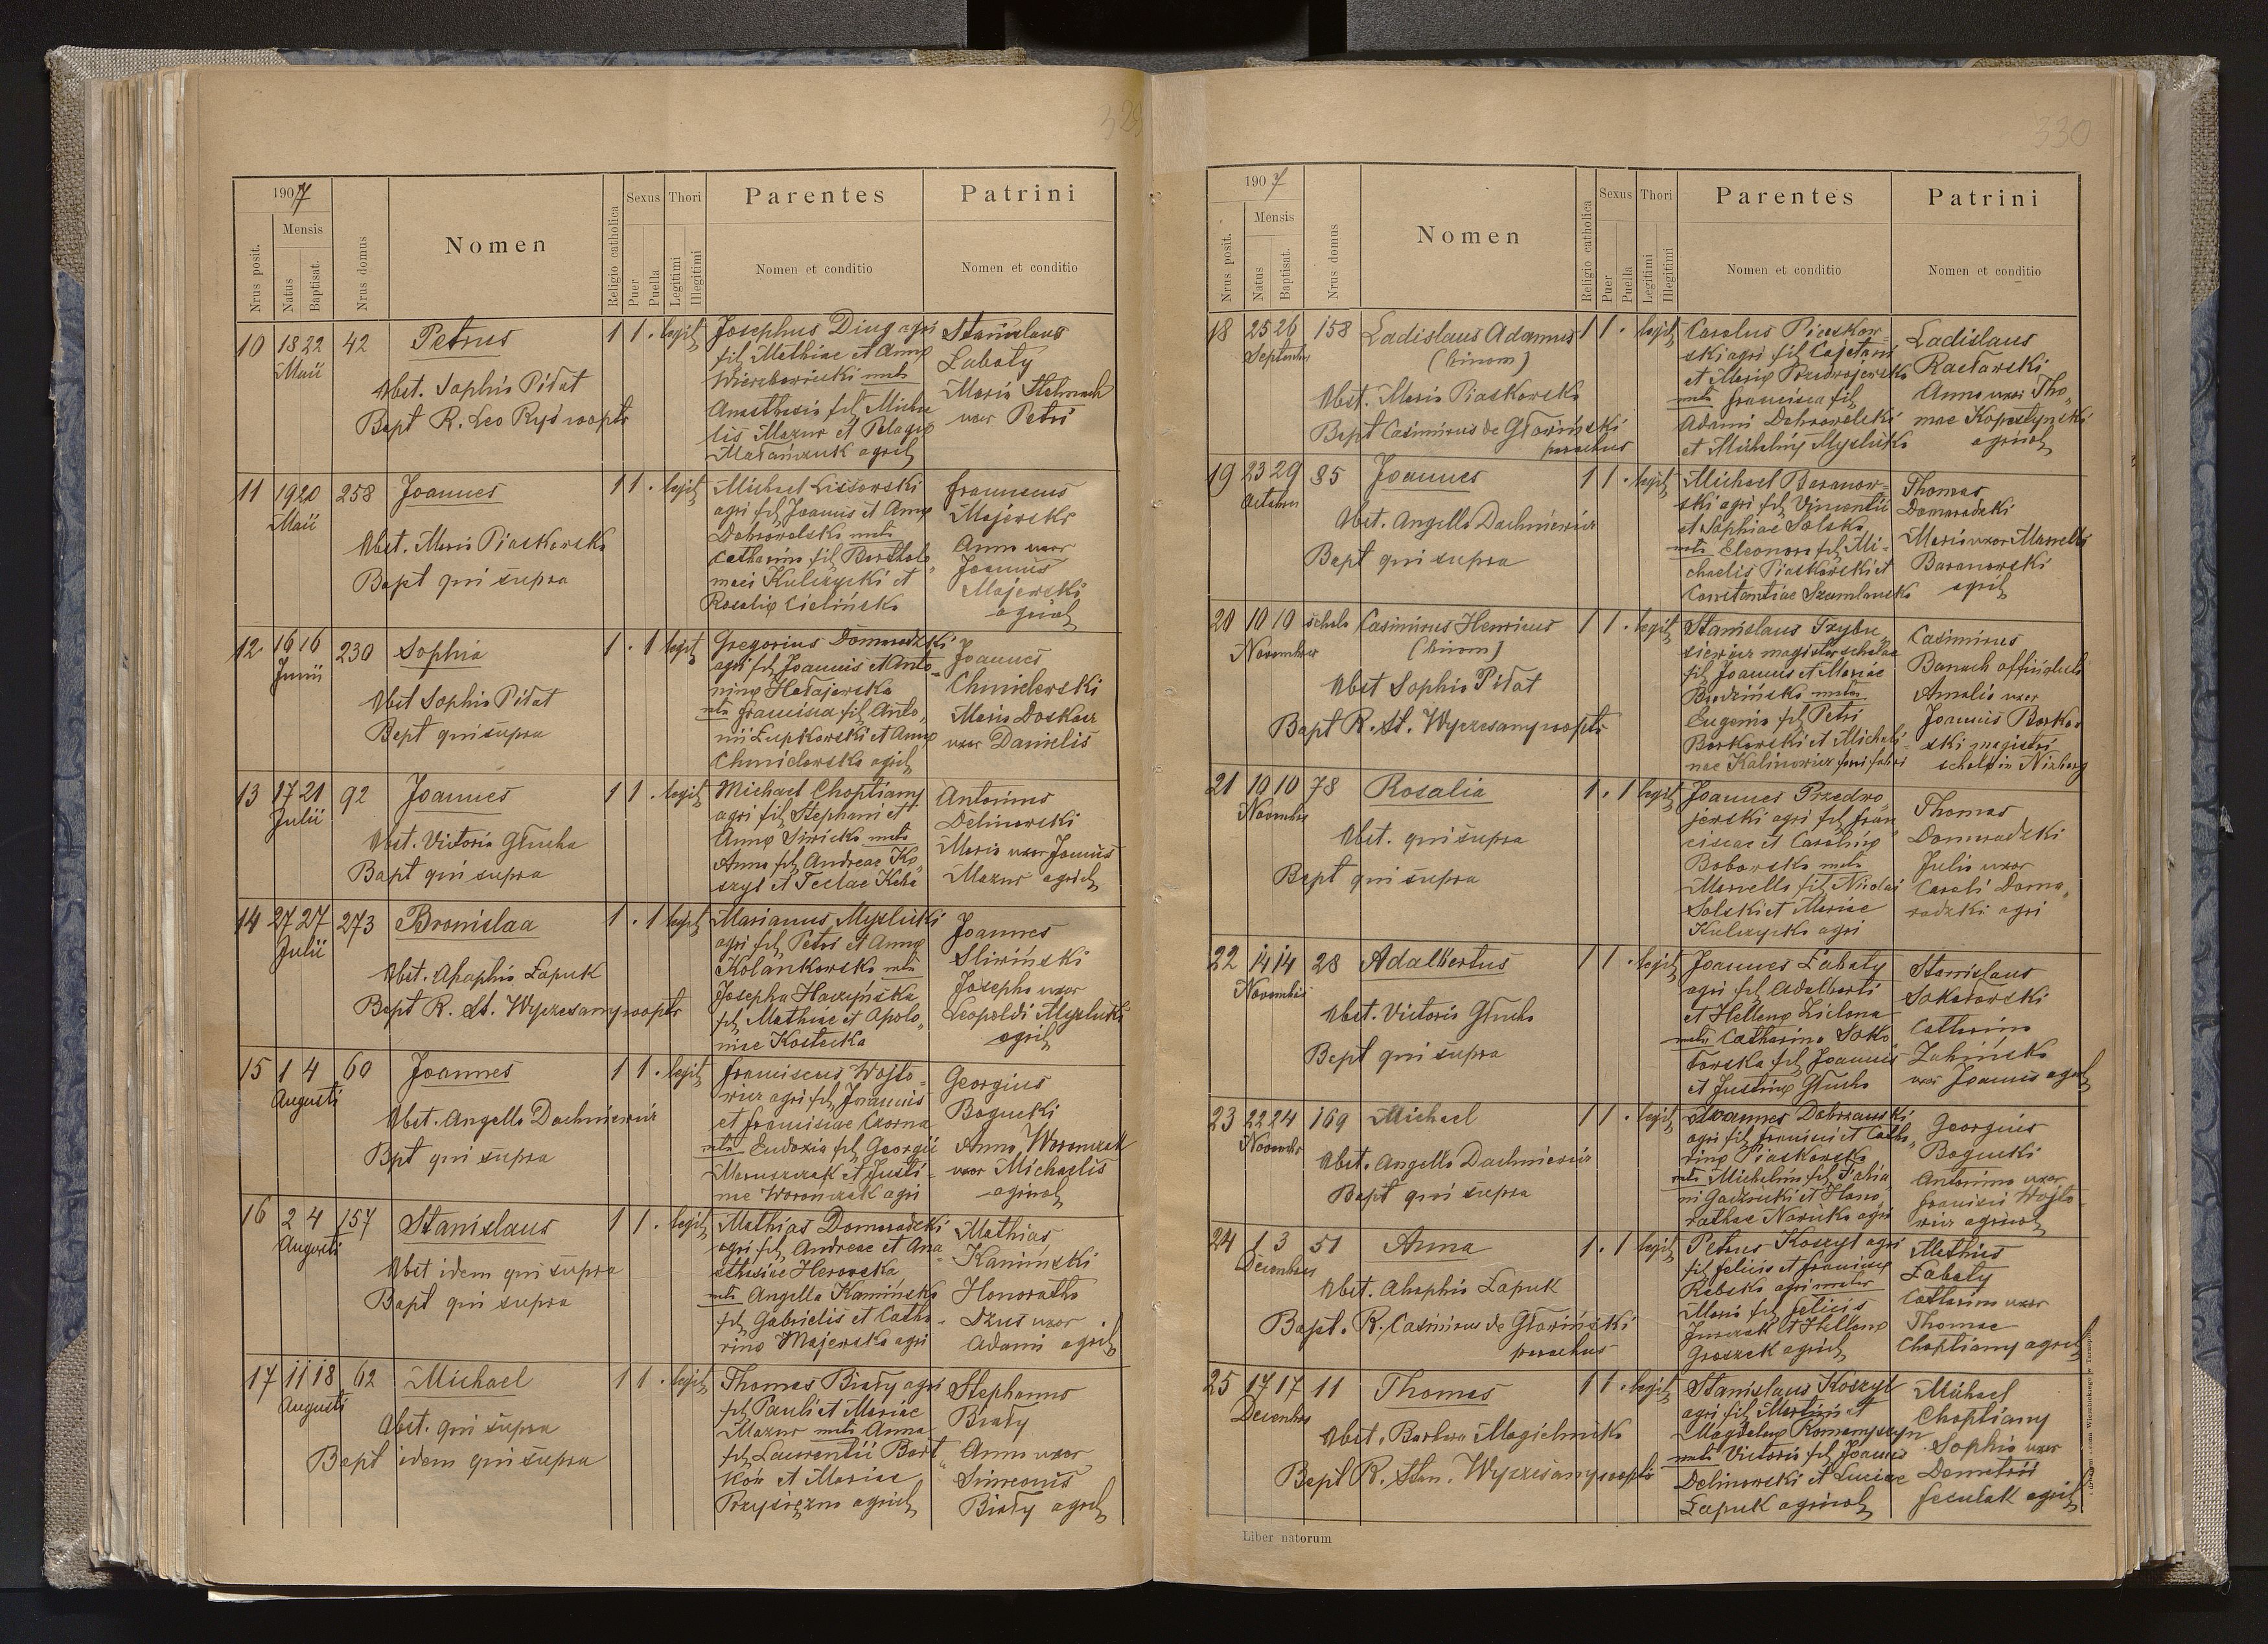 329
1907
Nrus posit.
Mensis
Natus
Baptisat.
Nrus domus
Nomen
Religio catholica
Sexus
Puer
Puella
Thori
Legitimi
Illegitimi
Parentes
Nomen et conditio
Patrini
Nomen et conditio
10 18 22 42 Petrus 1 1 . legit
Maii
Obst. Sophia Pidat
Bapt R. Leo Ryś coopts
Josephus Diug agri
fil Mathiae et Anna
Wierzbowicki mat
Anasthasia fil Micha
lis Mazur et Pelagia
Matańczuk agric
Stanislaus
Łabaty
Maria Stelmach
uxor Petri
11 19 20 258 Joannes 1 1 . legit
Maii
Obst. Maria Piaskowska
Bapt qui supra
Michael Lissowski
agri fil Joannis et Anna
Dobrowolska mat
Catharina fil Bartholo
maei Kulczycki et
Rosalia Cielińska
Franciscus
Majewski
Anna uxor
Joannis
Majewski
agricol
12 16 16 230 Sophia 1 . 1 legit
Junii
Obst Sophia Pidat
Bapt qui supra
Gregorius Domaradzki
agri fil Joannis et Anto
nina Hałajewska
mat Francisca fil Anto
nii Łupkowski et Anna
Chmielowska agric
Joannes
Chmielewski
Maria Doskacz
uxor Danielis
13 17 21 92 Joannes 1 1 . legit
Julii
Obst. Victoria Głucha
Bapt qui supra
Michael Choptiany
agri fil Stephani et
Anna Siricka mat
Anna fil Andreae Ko
szyl et Teclae Keba
Antonius
Delinowski
Maria uxor Joannis
Mazur agricol
14 27 27 273 Bronislaa 1 . 1 legit
Julii
Obst. Ahaphia Łapuk
Bapt R. St. Wyczesany coopts
Marianus Myslicki
agri fil Petri et Anna
Kolankowska mat
Josepha Haczyńska
fil Mathiae et Apolo
niae Kostecka
Joannes
Sliwiński
Josepha uxor
Leopoldi Myslicki
agric
15 1 4 60 Joannes 1 1 . legit
Augusti
Obst. Angella Dachniewicz
Bpt qui supra
Franciscus Wojto
wicz agri fil Joannis
et Franciscae Czorna
mat Eudoxia fil Georgii
Maruszczak et Justi
nae Worończak agri
Georgius
Bogucki
Anna Woronczak
uxor Michaelis
agricol
16 2 4 157 Stanislaus 1 1 . legit
Augusti
Obst idem qui supra
Bapt qui supra
Mathias Domaradzki
agri fil Andreae et Ana
sthasiae Herowska
mat Angella Kamińska
fil Gabrielis et Catha
rina Majewska agri
Mathias
Kamiński
Honoratha
Dzus uxor
Adami agric
17 11 18 62 Michael 1 1 . legit
Augusti
Obst. qui supra
Bapt idem qui supra
Thomas Biały agri
fil Pauli et Mariae
Mazur mat Anna
fil Laurentii Bart
ków et Mariae
Przysiężna agric
Stephanus
Biały
Anna uxor
Simeonis
Biały agric
330
1907
Nrus posit.
Mensis
Natus
Baptisat.
Nrus domus
Nomen
Religio catholica
Sexus
Puer
Puella
Thori
Legitimi
Illegitimi
Parentes
Nomen et conditio
Patrini
Nomen et conditio
18 25 26 158 Ladislaus Adamus 1 1 . legit
Septembr
(binom)
Obst. Maria Piaskowska
Bapt Casimirus de Głowiński
parochus
Carolus Piaskow
ski agri fil Cajetani
et Maria Przedrojewska
mat Francisca fil
Adami Dobrowolski
et Michalina Myslicka
Ladislaus
Raczarski
Anna uxor Tho
mae Kopestynski
agricol
19 23 29 85 Joannes 1 1 . legit
Octobris
Obst. Angella Dachniewicz
Bapt qui supra
Michael Baranow
ski agri fil Vincentii
et Sophiae Solska
mat Eleonora fil Mi
chaelis Piaskowski et
Constantiae Szumlanska
Thomas
Domaradzki
Maria uxor Marcelli
Baranowski
agric
20 10 10 schola Casimirus Henricus 1 1 . legit
Novembris
(binom)
Obst Sophia Pidat
Bapt R. St. Wyczesany coopts
Stanislaus Trzybu
siewicz magister scholae
fil Joannis et Mariae
Brodzińska mater
Eugenia fil Petri
Borkowski et Michali
nae Kalinowicz
Casimirus
Banach
Amalia uxor
Joannis Borkow
ski magistri
schola in Nizborg
21 10 10 78 Rosalia 1 . 1 legit
Novembris
Obst. qui supra
Bapt qui supra
Joannes Przedro
jewski agri fil Fran
ciscae et Carolina
Boborska mat
Marcella fil Nicolai
Solski et Mariae
Kulczycka agri
Thomas
Domaradzki
Julia uxor
Caroli Doma
radzki agri
22 14 14 28 Adalbertus 1 1 . legit
Novembris
Obst. Victoria Głucha
Bapt qui supra
Joannes Łabaty
agri fil Adalberti
et Hellena Zielona
mat Catharina Soko
łowska fil Joannis
et Justina Głucha
Stanislaus
Sokołowski
Catharina
Zahińska
uxor Joannis agric
23 22 24 169 Michael 1 1 . legit
Novembr
Obst. Angella Dachniewicz
Bapt qui supra
Joannes Dobrzanski
agri fil Francisci et Catha
rina Piaskowska
mat Michelina fil Fabia
ni Gadznicki et Hono
rathae Naricka agri
Georgius
Bogucki
Antonina uxor
Francisci Wojto
wicz agricol
24 1 3 51 Anna 1 . 1 legit
Decembris
Obst. Ahaphia Łapuk
Bapt. R. Casimirus de Głowiński
parochus
Petrus Koszyl agri
fil Felicis et Francisca
Rebska agri mater
Maria fil Felicis
Jurczak et Hellena
Groszek agric
Mathias
Łabaty
Catharina uxor
Thomae
Choptiany agric
25 17 17 11 Thomas 1 1 . legit
Decembris
Obst. Barbara Magielnicka
Bapt R. Stan. Wyczesany coopts
Stanislaus Koszyl
agri fil Martini et
Magdalena Romanyszyn
mat Victoria fil Joannis
Delinowski et Luciae
Łapuk agricol
Michael
Choptiany
Sophia uxor
Demetrii
Feculak agric
Liber natorum